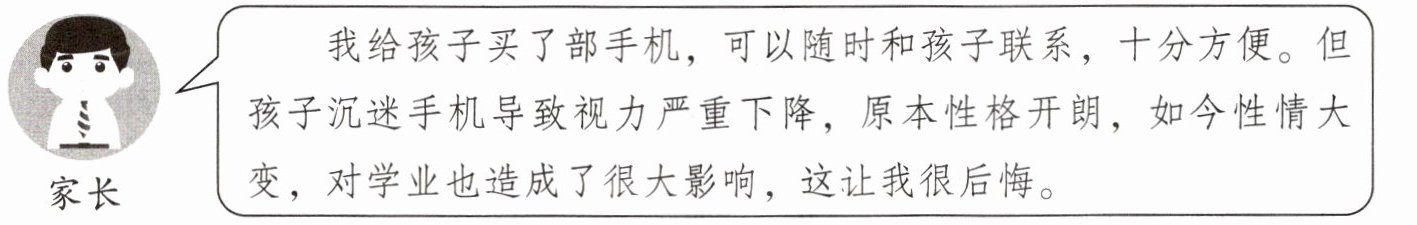 我给孩子买了部手机，可以随时和孩子联系，十分方便。但
孩子沉迷手机导致视力严重下降，原本性格开朗，如今性情大
变，对学业也造成了很大影响，这让我很后悔。
家长